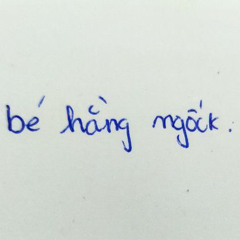 bé hằng ngốck.